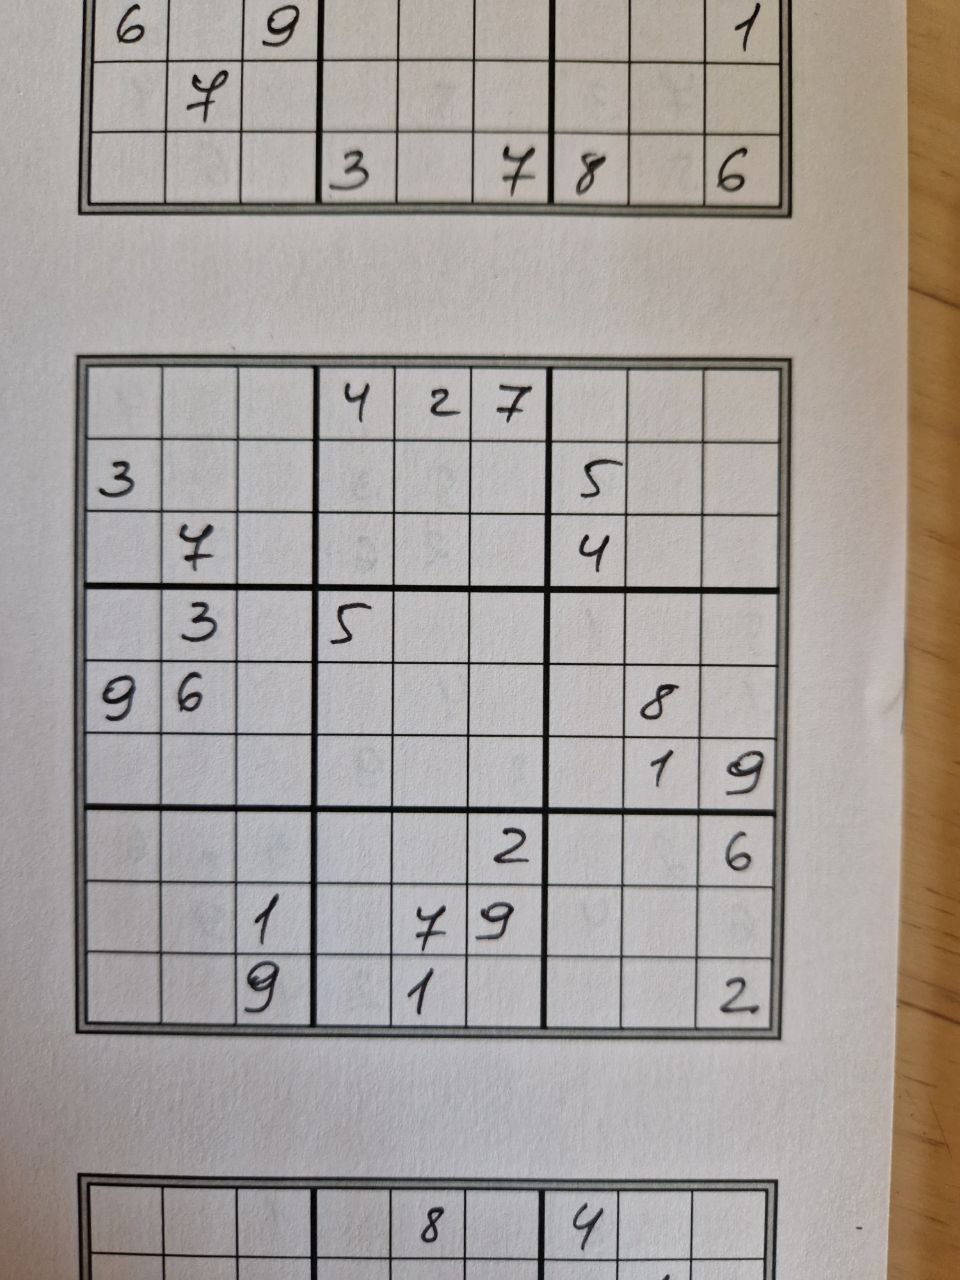 6 9 1
7
3 7 8 6
4 2 7
3 5
7 4
3 5
9 6 8
1 9
2 6
1 7 9
9 1 2
8 4